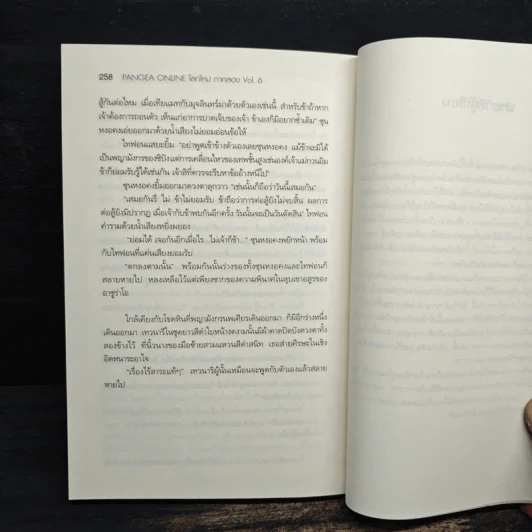 258 PANGEA ONLINE โลกใหม่ ภาคสอง Vol. 6
สู้กันต่อไหม เมื่อเทียแมทกับมุจลินทร์มาด้วยตัวเองเช่นนี้ สำหรับข้าถ้าหาก
เจ้าต้องการถอนตัว เห็นแก่อาการบาดเจ็บของเจ้า ข้าเองก็มิอยากซ้ำเติม" ซุน
หงอคงเอ่ยออกมาด้วยน้ำเสียงไม่ยอมอ่อนข้อให้
ไทฟอนแสยะยิ้ม "อย่าพูดเข้าข้างตัวเองเลยซุนหงอคง แม้ข้าจะมิได้
เป็นพญามังกรของชีปังแต่การเคลื่อนไหวของเทพชั้นสูงเช่นองค์เจ้าแม่กวนอิม
ข้าก็ย่อมรับรู้ได้เช่นกัน เจ้าสิที่ควรจะรีบหาข้ออ้างหนีไป"
ซุนหงอคงยิ้มออกมาดวงตาลุกวาว "เช่นนั้นก็ถือว่าวันนี้เสมอกัน"
"เสมอกันรึ ไม่ ข้าไม่ยอมรับ ข้าถือว่าการต่อสู้ยังไม่จบสิ้น ผลการ
ต่อสู้ยังมิปรากฏ เมื่อเจ้ากับข้าพบกันอีกครั้ง วันนั้นจะเป็นวันตัดสิน" ไทฟอน
คำรามด้วยน้ำเสียงหยิ่งผยอง
"ย่อมได้ เจอกันอีกเมื่อไร...ไม่เจ้าก็ข้า..." ซุนหงอคงพยักหน้า พร้อม
กับไทฟอนที่แค่นเสียงยอมรับ
"ตกลงตามนั้น" พร้อมกันนั้นร่างของทั้งซุนหงอคงและไทฟอนก็
สลายหายไป หลงเหลือไว้แต่เพียงซากของความพินาศในหุบเขาอสูรของ
อาซูร่าโอ
ใกล้เคียงกับโขดหินที่พญามังกรนพเศียรเดินออกมา ก็มีอีกร่างหนึ่ง
เดินออกมา เทวนารีในชุดยาวสีดำใบหน้างดงามนั้นมีผ้าคาดปิดบังดวงตาทั้ง
สองข้างไว้ ที่นิ้วนางของมือซ้ายสวมแหวนสีดำสนิท เธอส่ายศีรษะในเชิง
อิดหนาระอาใจ
"เรื่องไร้สาระแท้ๆ" เทวนารีผู้นั้นเหมือนจะพูดกับตัวเองแล้วสลาย
หายไป